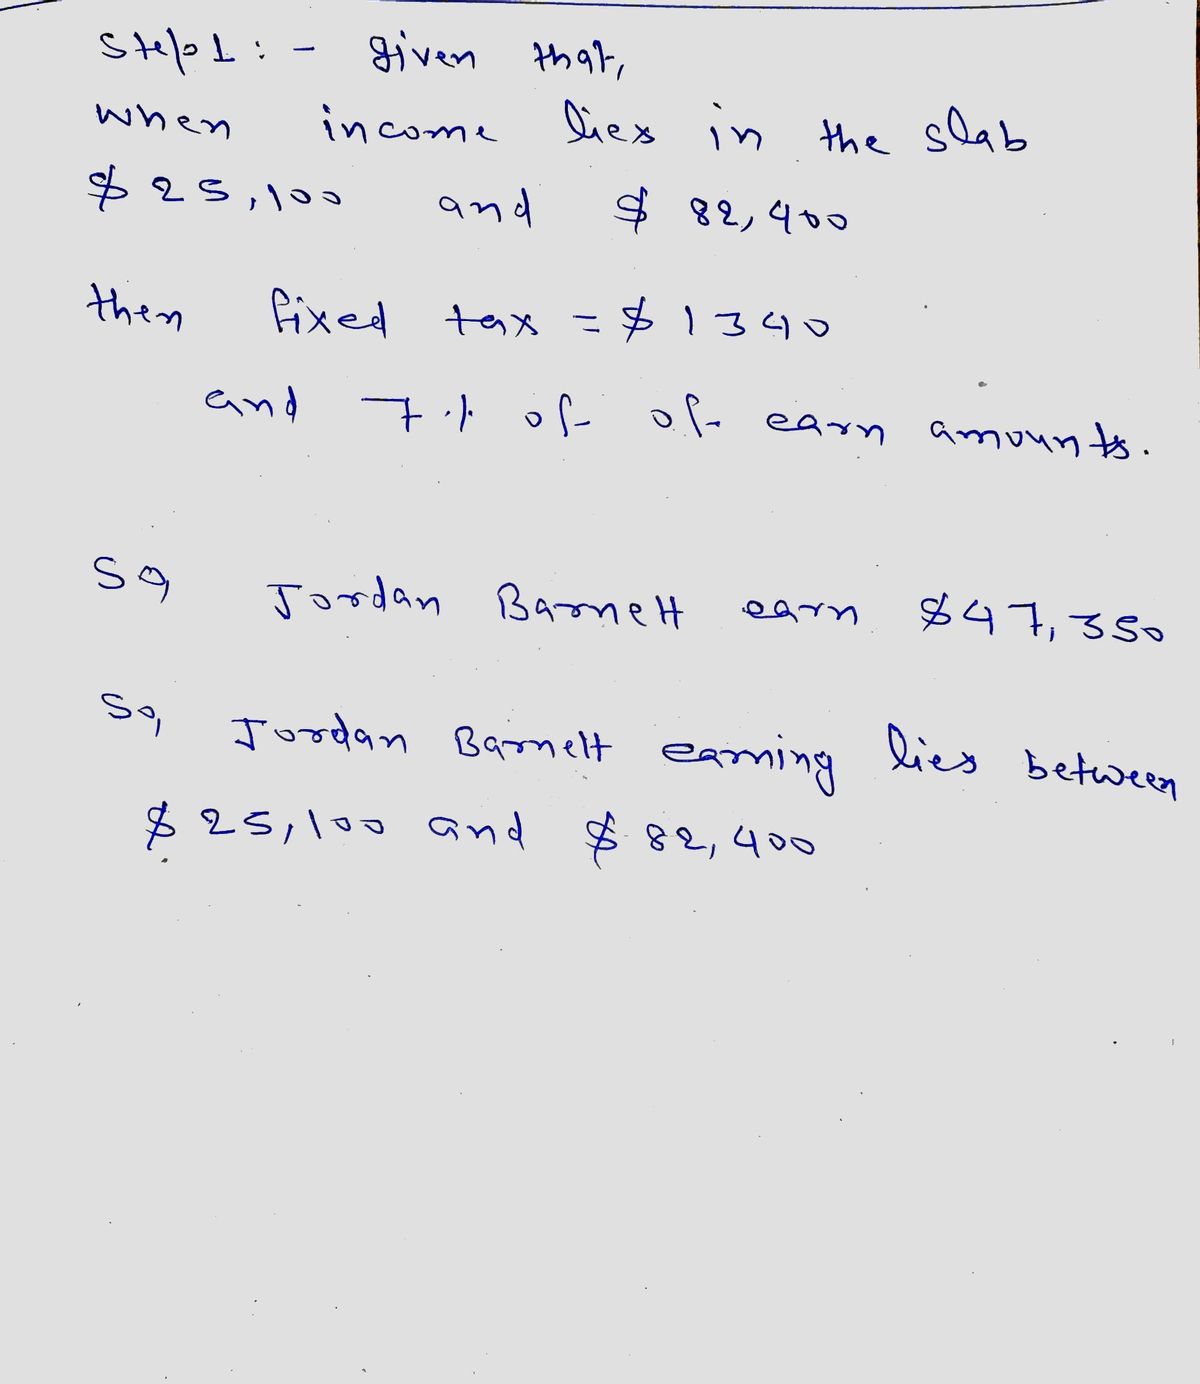 Step 1 : - given that,
when income lies in the slab
$ 25,100 and $ 82,400
then fixed tax = $ 1340
and 7 % of of earn amounts.
So, Jordan Barnett earn $47,350
So, Jordan Barnett earning lies between
$ 25,100 and $ 82,400